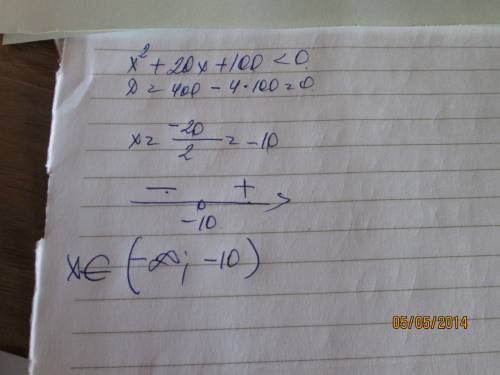 x² + 20x + 100 < 0
D = 400 - 4·100 = 0
x = -20/2 = -10
- +
-10
x ∈ (-∞; -10)
05/05/2014